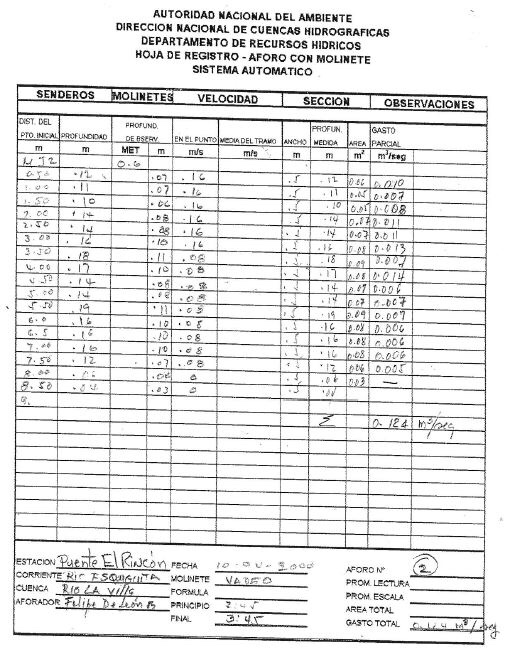 AUTORIDAD NACIONAL DEL AMBIENTE
DIRECCION NACIONAL DE CUENCAS HIDROGRAFICAS
DEPARTAMENTO DE RECURSOS HIDRICOS
HOJA DE REGISTRO - AFORO CON MOLINETE
SISTEMA AUTOMATICO
SENDEROS MOLINETES VELOCIDAD SECCION OBSERVACIONES
DIST. DEL PROFUND. PROFUN. GASTO
PTO. INICIAL PROFUNDIDAD DE OBSERV. EN EL PUNTO MEDIA DEL TRAMO ANCHO MEDIDA AREA PARCIAL
m m MET m m/s m/s m m m² m³/seg
0.6
0.50 .12 .07 .16 .5 .12 0.06 0.010
1.00 .11 .07 .16 .5 .11 0.05 0.007
1.50 .10 .06 .16 .5 .10 0.05 0.008
2.00 .14 .08 .16 .5 .14 0.07 0.011
2.50 .14 .08 .16 .5 .14 0.07 0.011
3.00 .16 .10 .16 .5 .16 0.08 0.013
3.50 .18 .11 .08 .5 .18 0.09 0.007
4.00 .17 .10 .08 .5 .17 0.08 0.014
4.50 .14 .08 .08 .5 .14 0.07 0.006
5.00 .14 .08 .08 .5 .14 0.07 0.007
5.50 .19 .11 .08 .5 .19 0.09 0.007
6.0 .16 .10 .08 .5 .16 0.08 0.006
6.5 .16 .10 .08 .5 .16 0.08 0.006
7.00 .16 .10 .08 .5 .16 0.08 0.006
7.50 .12 .07 .08 .5 .12 0.06 0.005
8.00 .06 .06 0 .5 .06 0.03 —
8.50 .03 0 .5
9.
Σ 0.124 m³/seg
ESTACION Puente El Rincón FECHA 2000 AFORO Nº 2
CORRIENTE Rio MOLINETE VADEO PROM. LECTURA
CUENCA Rio La Villa FORMULA PROM. ESCALA
AFORADOR Felipe De León B PRINCIPIO 2:45 AREA TOTAL
FINAL 3:45 GASTO TOTAL 0.124 m³/seg